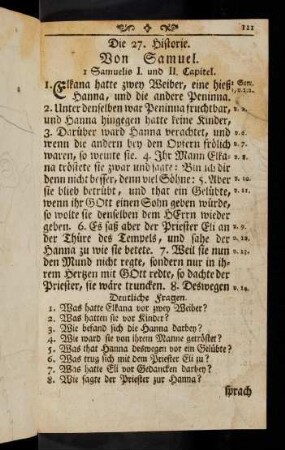 111
Die 27. Historie.
Von Samuel.
1 Samuelis I. und II. Capitel.
1. Elkana hatte zwey Weiber, eine hieß
Hanna, und die andere Peninna. v. 1. 2.
2. Unter denselben war Peninna fruchtbar, v. 2.
und Hanna hingegen hatte keine Kinder,
3. Darüber ward Hanna verachtet, und v. 6.
wenn die andern bey den Opfern frölich v. 7.
waren, so weinte sie. 4. Ihr Mann Elka- v. 8.
na tröstete sie zwar und sagte: Bin ich dir
denn nicht besser, denn viel Söhne: 5. Aber v. 10.
sie blieb betrübt, und that ein Gelübte, v. 11.
wenn ihr GOtt einen Sohn geben würde,
so wolte sie denselben dem HErrn wieder
geben. 6. Es saß aber der Priester Eli an v. 9.
der Thüre des Tempels, und sahe der v. 12.
Hanna zu wie sie betete. 7. Weil sie nun v. 13.
den Mund nicht regte, sondern nur in ih-
rem Hertzen mit GOtt redte, so dachte der
Priester, sie wäre truncken. 8. Deswegen v. 14.
Deutliche Fragen.
1. Was hatte Elkana vor zwey Weiber?
2. Was hatten sie vor Kinder?
3. Wie befand sich die Hanna darbey?
4. Wie ward sie von ihrem Manne getröstet?
5. Was that Hanna deswegen vor ein Gelübte?
6. Was trug sich mit dem Priester Eli zu?
7. Was hatte Eli vor Gedancken darbey?
8. Wie sagte der Priester zur Hanna?
sprach